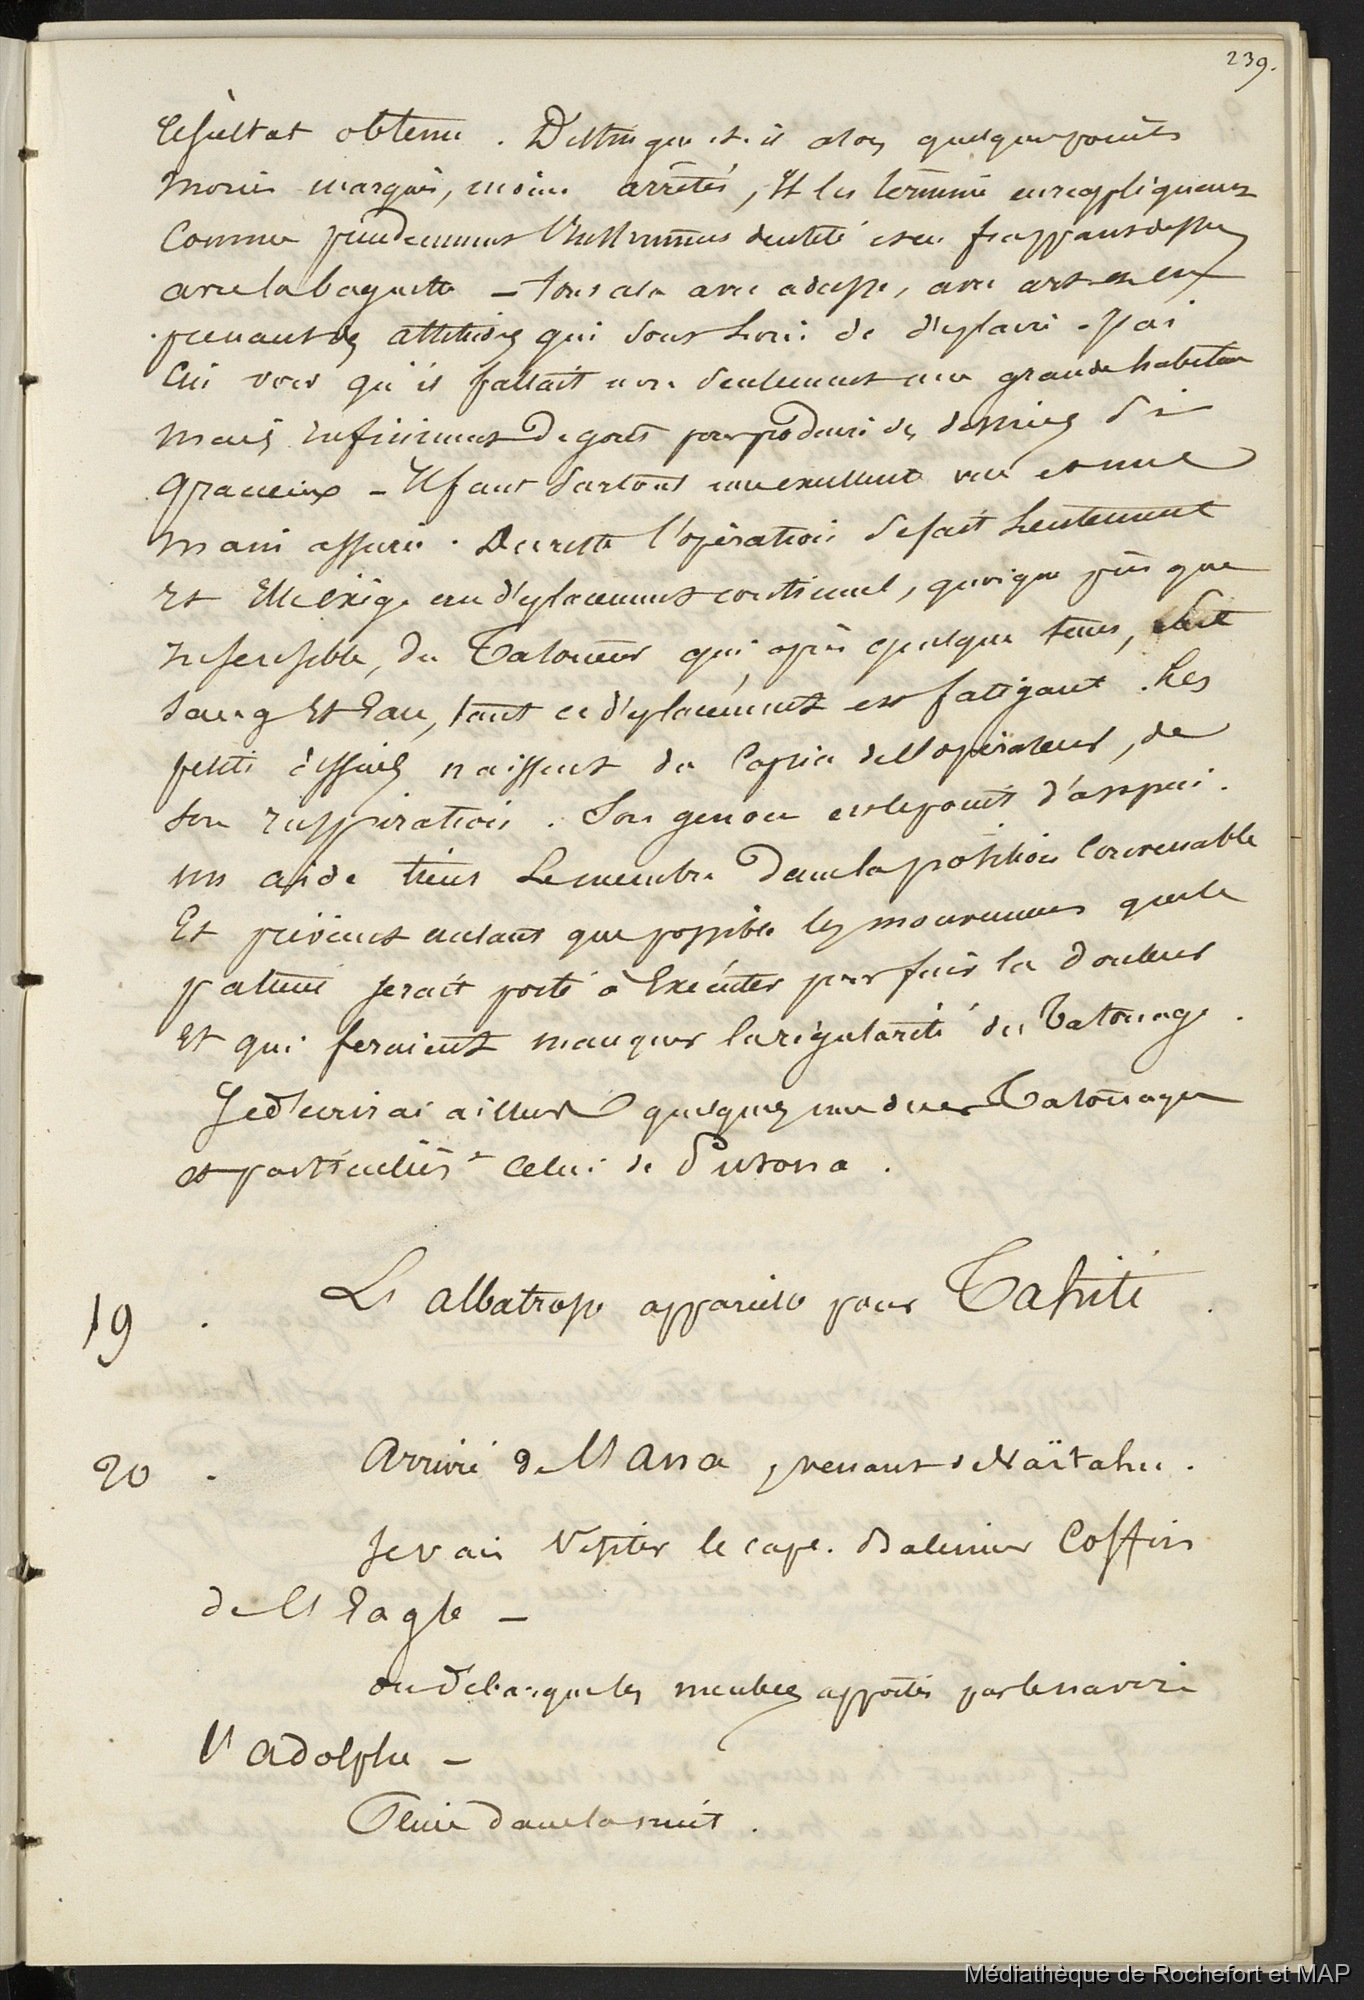 239.
résultat obtenu. Distingue-t-il alors quelques points
moins marqués, moins arrêtés, Il les termine en reappliquant
comme précédemment l'instrument denteté et en frappant dessus
avec la baguette — tout cela avec adresse, avec art et en
prenant des attitudes qui sont loin de déplaire. J'ai
cru voir qu'il fallait non seulement une grande habitude
mais infiniment de goût pour produire des dessins si
gracieux — Il faut surtout une excellente vue et une
main assurée. Du reste l'opération se fait lentement
et Elle exige un déplacement continuel, quoique près que
insensible, du Tatoueur qui, après quelque tems, sue
sang et Eau, tant ce déplacement est fatigant. Les
petits dessins naissent du caprice de l'opérateur, de
son inspiration. Son genou est le point d'appui.
un aide tient le membre dans la position convenable
Et prévient autant que possible les mouvemens que le
patient serait porté à Exécuter pour fuir la douleur
Et qui feraient manquer la régularité du Tatouage.
Je décrirai ailleurs quelques uns de ces Tatouages
et particulièrt celui de
19. L'albatross appareille pour Tahiti.
20. Arrivée de l'Anna, venant de Vaïtahu.
Je vais visiter le cape. Baleinier Coffin
de l'Eagle —
on débarque les meubles apportés par le navire
l'adolphe —
Pluie dans la nuit.
Médiathèque de Rochefort et MAP